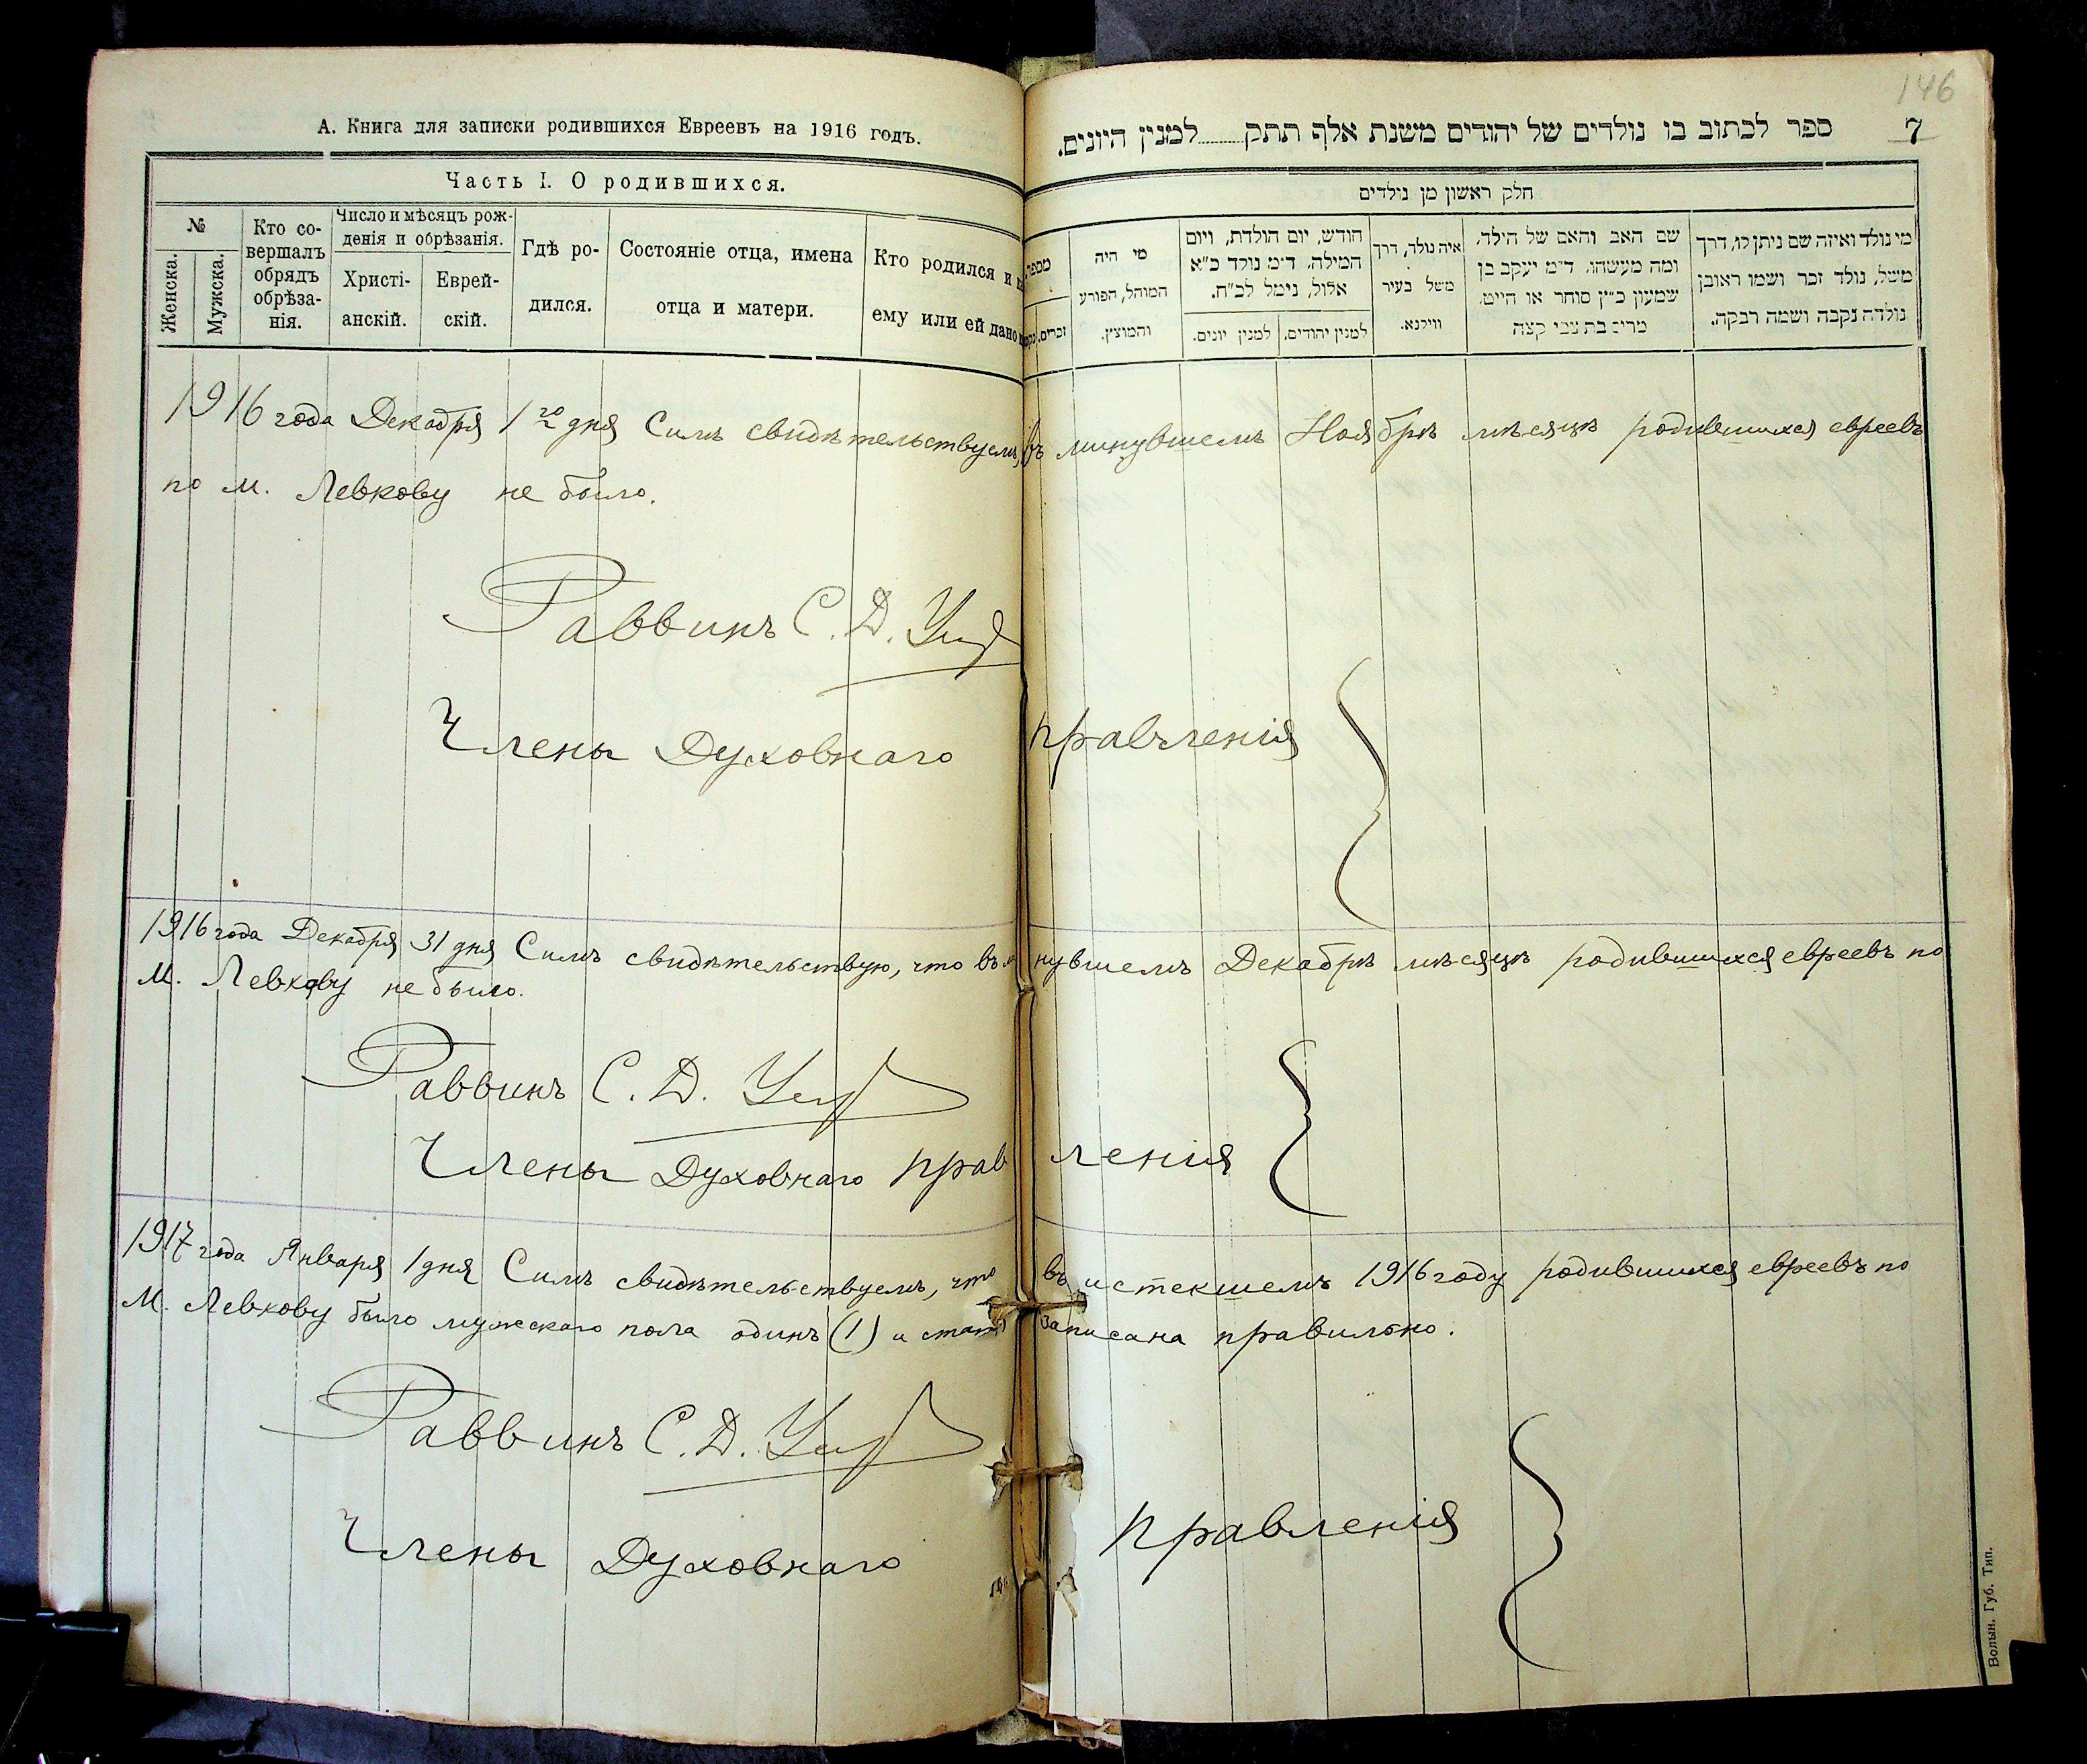 146
А. Книга для записки родившихся Евреевъ на 1916 годъ.
ספר לכתוב בו נולדים של יהודים משנת אלף תתק למנין היונים.
7
Часть I. О родившихся.
חלק ראשון מן נולדים
№
Женска.
Мужска.
Кто со-
вершалъ
обрядъ
обрѣза-
нія.
Число и мѣсяцъ рож-
денія и обрѣзанія.
Христі-
анскій.
Еврей-
скій.
Гдѣ ро-
дился.
Состояніе отца, имена
отца и матери.
Кто родился и
ему или ей дано
מספר
זכרים.
מי היה
המוהל, הפורע
והמוצץ.
חודש, יום הולדת, ויום
המילה. ד״מ נולד כ״א
אלול, נימל לכ״ח.
למנין יהודים.
למנין יונים.
איה נולד, דרך
משל בעיר
ווילנא.
שם האב והאם של הילד,
ומה מעשהו. ד״מ יעקב בן
שמעון כ״ץ סוחר או חייט.
מרים בת צבי קצה
מי נולד ואיזה שם ניתן לו, דרך
משל, נולד זכר ושמו ראובן
נולדה נקבה ושמה רבקה.
1916 года Декабря 1го дня Симъ свидѣтельствуемъ, въ минувшемъ Ноябрѣ мѣсяцѣ родившихся евреевъ
по м. Левкову не было.
Раввинъ С. Д.
Члены Духовнаго правленія
1916 года Декабря 31 дня Симъ свидѣтельствую, что въ минувшемъ Декабрѣ мѣсяцѣ родившихся евреевъ по
м. Левкову не было.
Раввинъ С. Д.
Члены Духовнаго правленія
1917 года Января 1 дня Симъ свидѣтельствуемъ, что въ истекшемъ 1916 году родившихся евреевъ по
м. Левкову было мужскаго пола одинъ (1) и статья записана правильно.
Раввинъ С. Д.
Члены Духовнаго правленія
Волын. Губ. Тип.